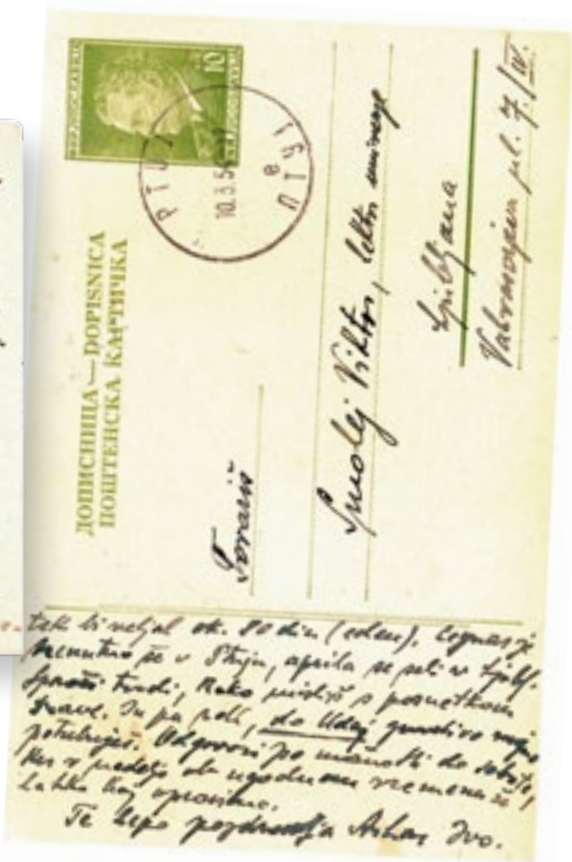 ДОПИСНИЦА — DOPISNICA
ПОШТЕНСКА КАРТИЧКА
10
PTUJ
10.3.5
e
ПТУЈ
Tovariš
Smolej Viktor, lektor univerze
Ljubljana
Valvasorjev pl. 7/IV.
tak bi veljal ok. 80 din (eden).
še v aprila se seli v Ljublj.
Sporoči tudi, kako misliš s posnetkom
Drave. In pa do kdaj
potrebuješ. Odgovori po možnosti do sobote,
ker v nedeljo ob ugodnem vremenu že
lahko kaj
Te lepo pozdravlja Ivo.